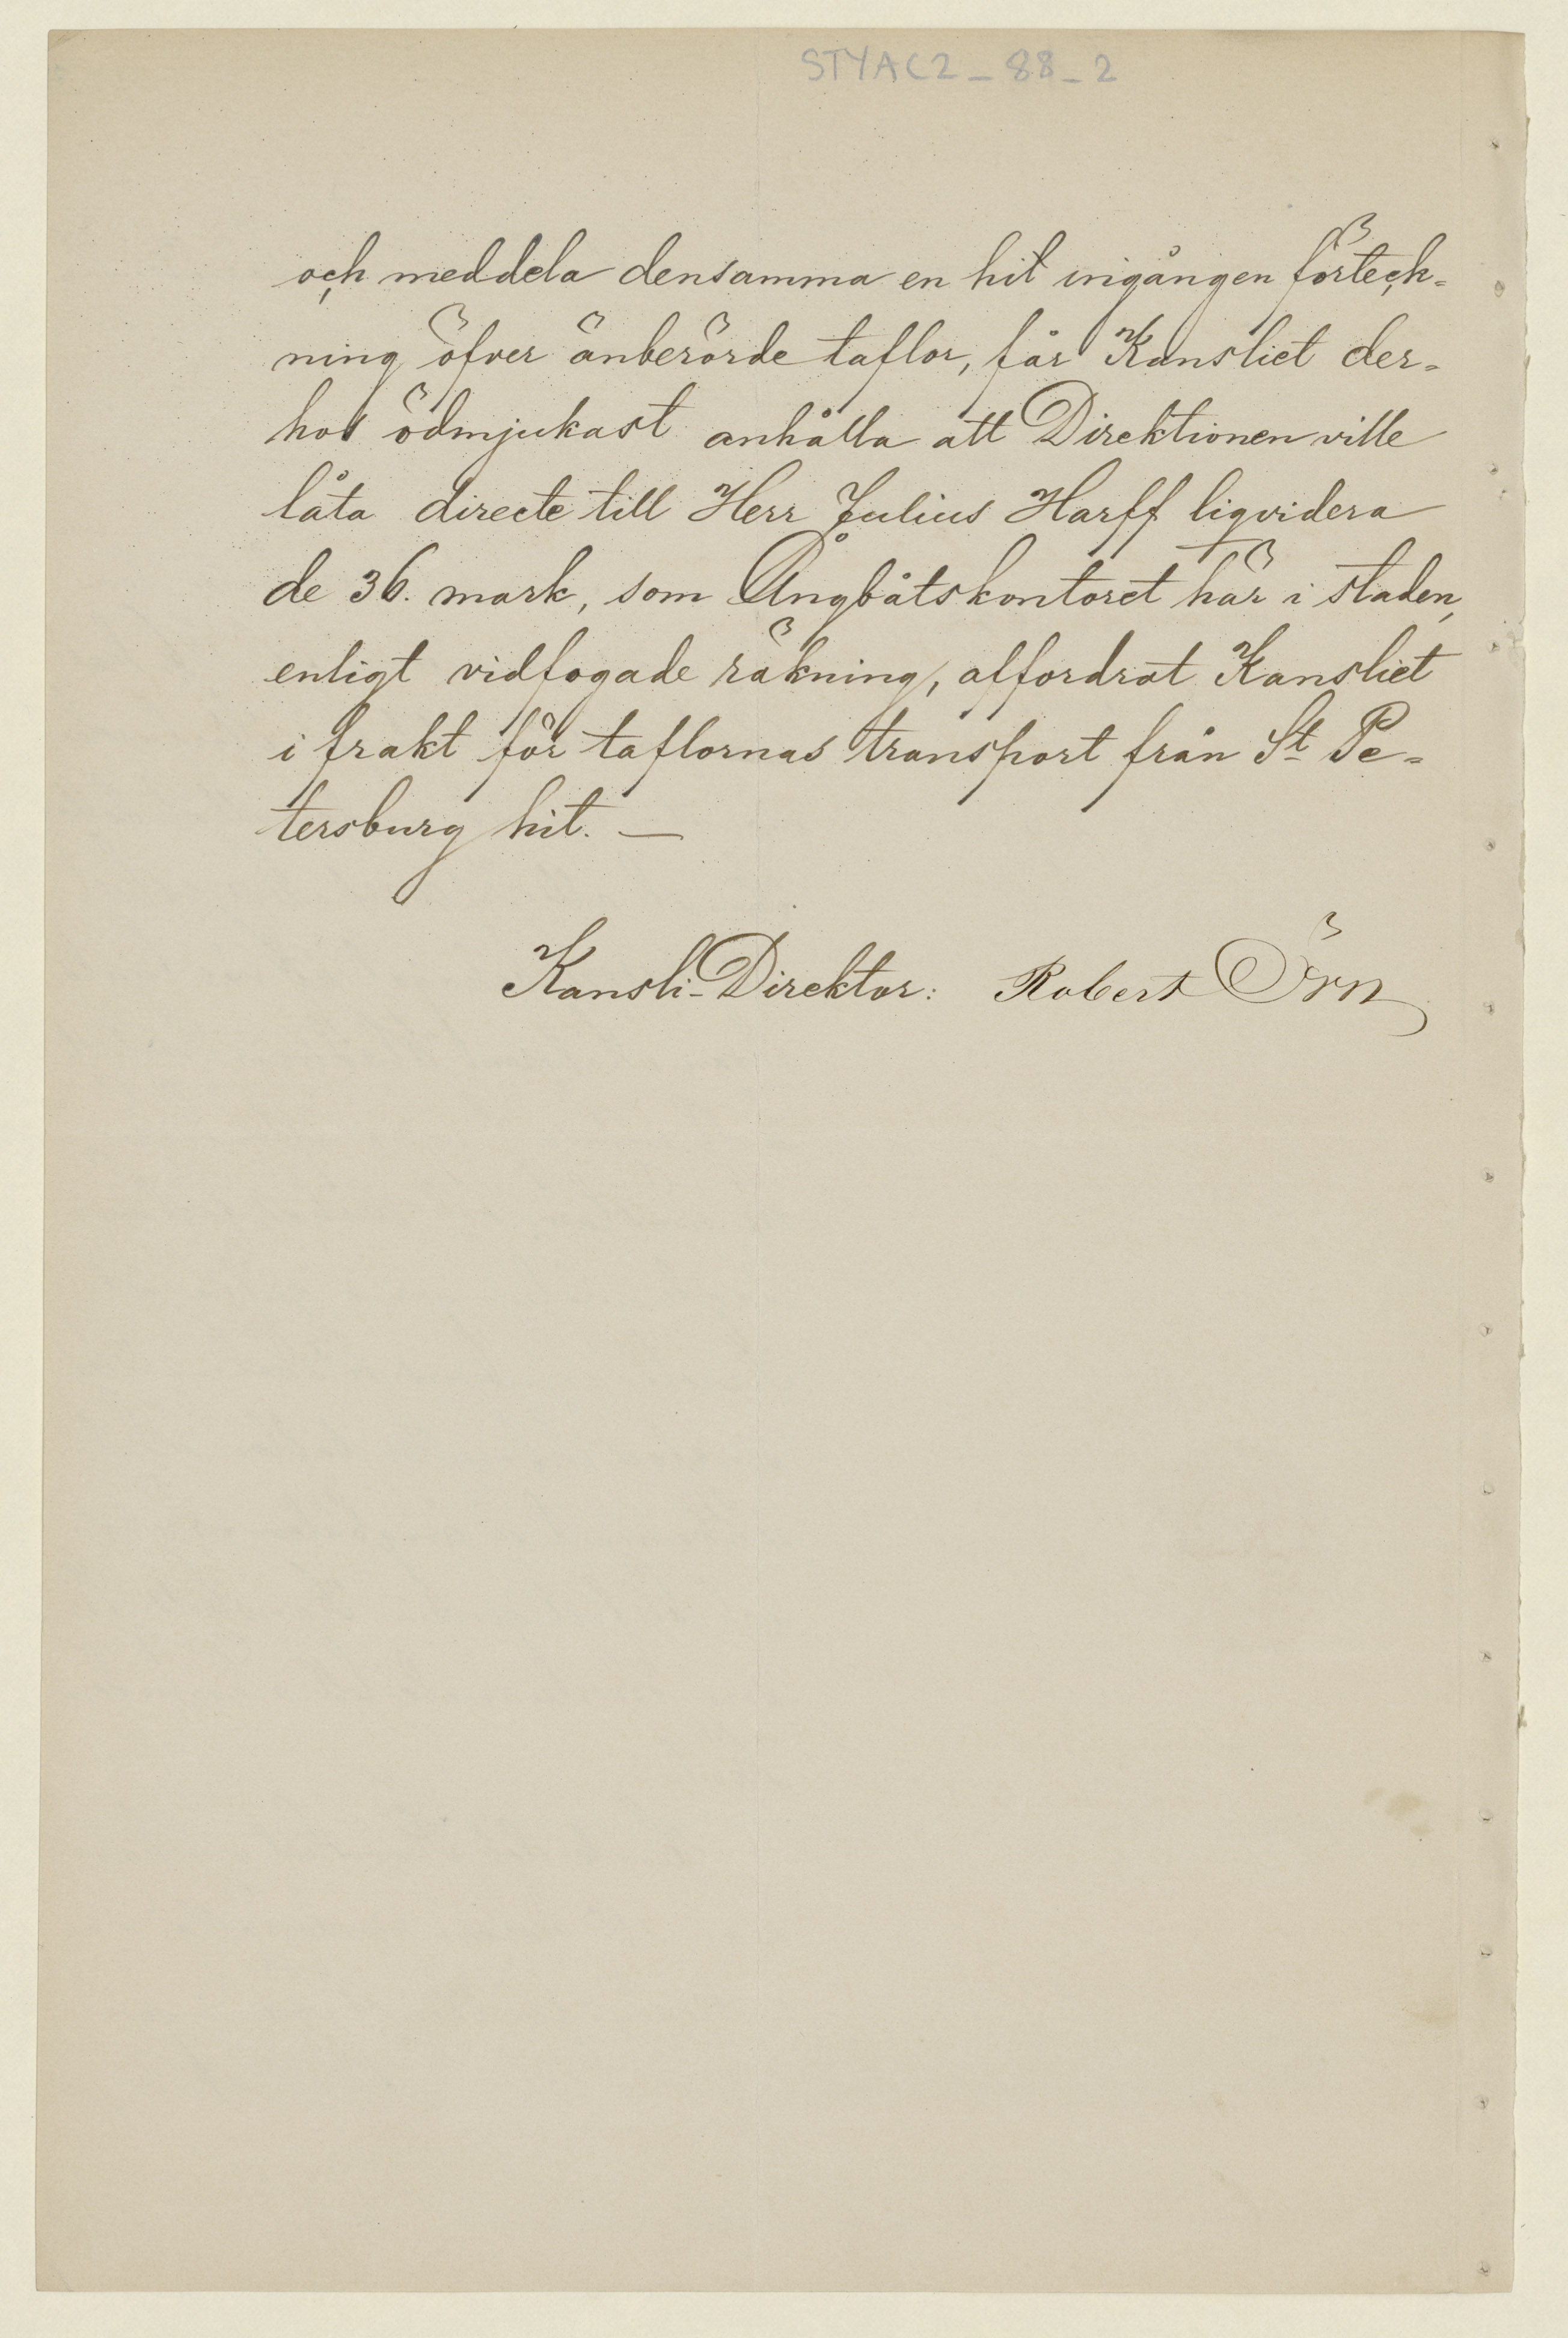 STYAC2_88_2
och meddela densamma en hit ingången förteck=
ning öfver änberörde taflor, får Kansliet der=
hos ödmjukast anhålla att Direktionen ville
låta directe till Herr Julius Harff liqvidera
de 36. mark, som Ångbåtskontoret här i staden,
enligt vidfogade räkning, affordrat Kansliet
i frakt för taflornas transport från St Pe=
tersburg hit. —
Kansli-Direktor: Robert Örn